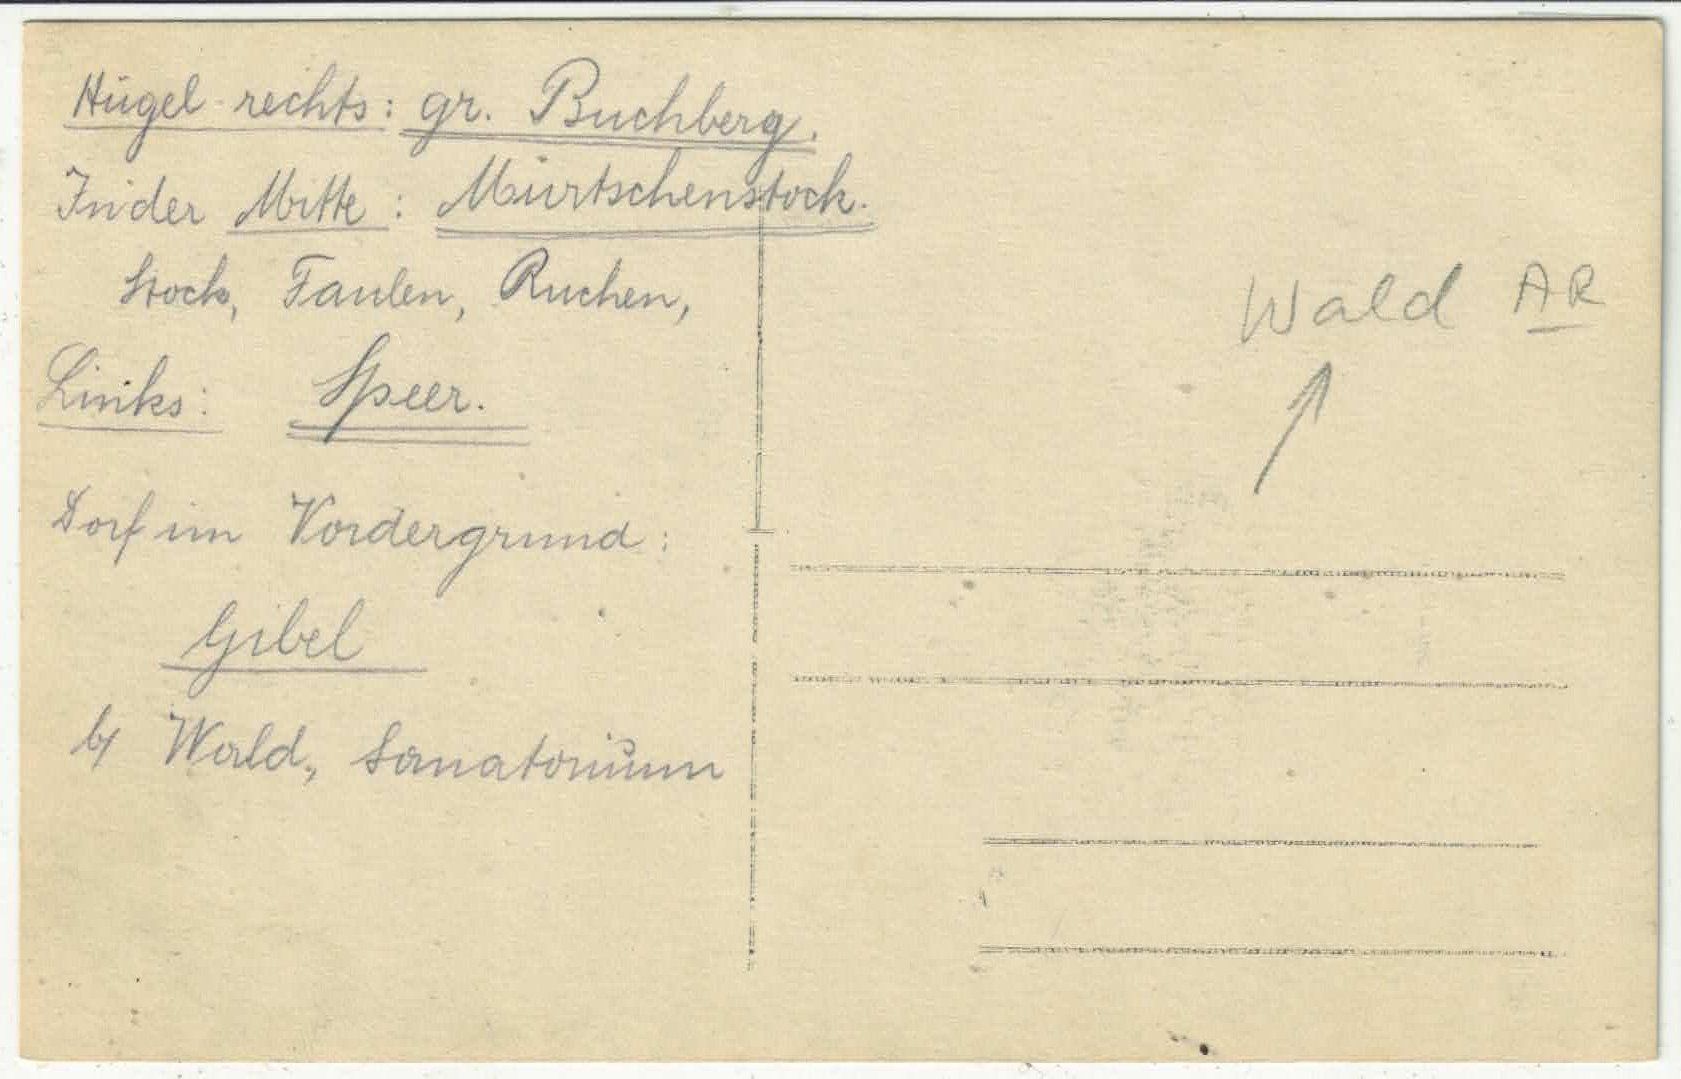 Hügel rechts: gr. Buchberg.
In der Mitte: Mürtschenstock.
Stock, Faulen, Ruchen,
Links: Speer.
Dorf im Vordergrund:
Gibel
b/ Wald, Sanatorium
Wald AR